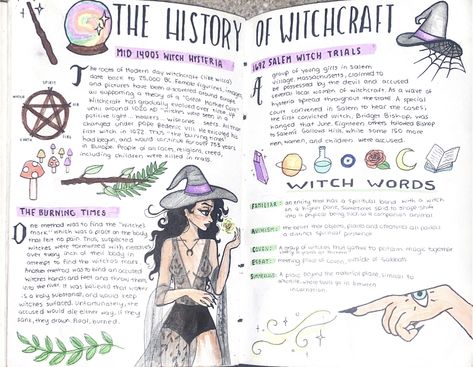 THE HISTORY OF WITCHCRAFT
MID 1400S WITCH HYSTERIA
The roots of Modern day witchcraft (like wicca)
date back to 75,000 BC. Female figurines, images
and pictures have been discovered
all supporting a theory of a "Great Mother Earth".
Witchcraft has gradually evolved over time, up
until around 1020 AD - witches were seen in a
positive light... healers... wiseones... seers. All that
changed under Pope Frederic VIII. He executed his
first witch in 1022. Thus, the burning times
had begun, and would continue for over 753 years
in Europe. People of all races, religions, creed,
including children were killed in mass.
SPIRIT
WATER
FIRE
THE BURNING TIMES
One method was to find the "witches
mark", which was a place on the body
that felt no pain. Thus, suspected
witches were tormented with needles
over every inch of their body in
attempt to find the witches mark.
Another method was to bind an accused
witches hands and feet and throw them
into the river. It was believed that water
is a holy substance, and would keep
witches surfaced. Unfortunately, the
accused would die either way, if they
sank, they drown. Float, burned.
1692 SALEM WITCH TRIALS
A group of young girls in Salem
village Massachusetts, claimed to
be possessed by the devil and accused
several local women of witchcraft. As a wave of
hysteria spread throughout the state. A special
court convened in Salem to hear the cases;
the first convicted witch, Bridget Bishop, was
hanged that June. Eighteen others followed Bishop
to Salem's Gallows Hill, while some 150 more
men, women, and children were accused.
WITCH WORDS
FAMILIAR: an entity that has a spiritual bond with a witch
on a higher plane. Sometimes said to shape shift
into a physical being such as a companion animal.
ANIMISM: the belief that objects, places and creatures all possess
a distinct spiritual presence
COVEN: A group of witches that gathers to perform magic together
ESBAT: meeting place of coven, outside of sabbath
A place beyond the material plane, similar to